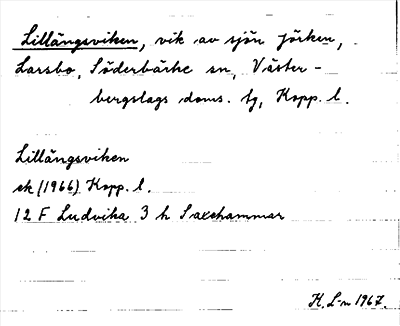 Lillängsviken, vik av sjön Jörken,
Larsbo, Söderbärke sn, Väster-
bergslags doms. tg, Kopp. l.
Lillängsviken
ek (1966) Kopp. l.
12 F Ludvika 3 h Saxehammar
H. L-n 1967.